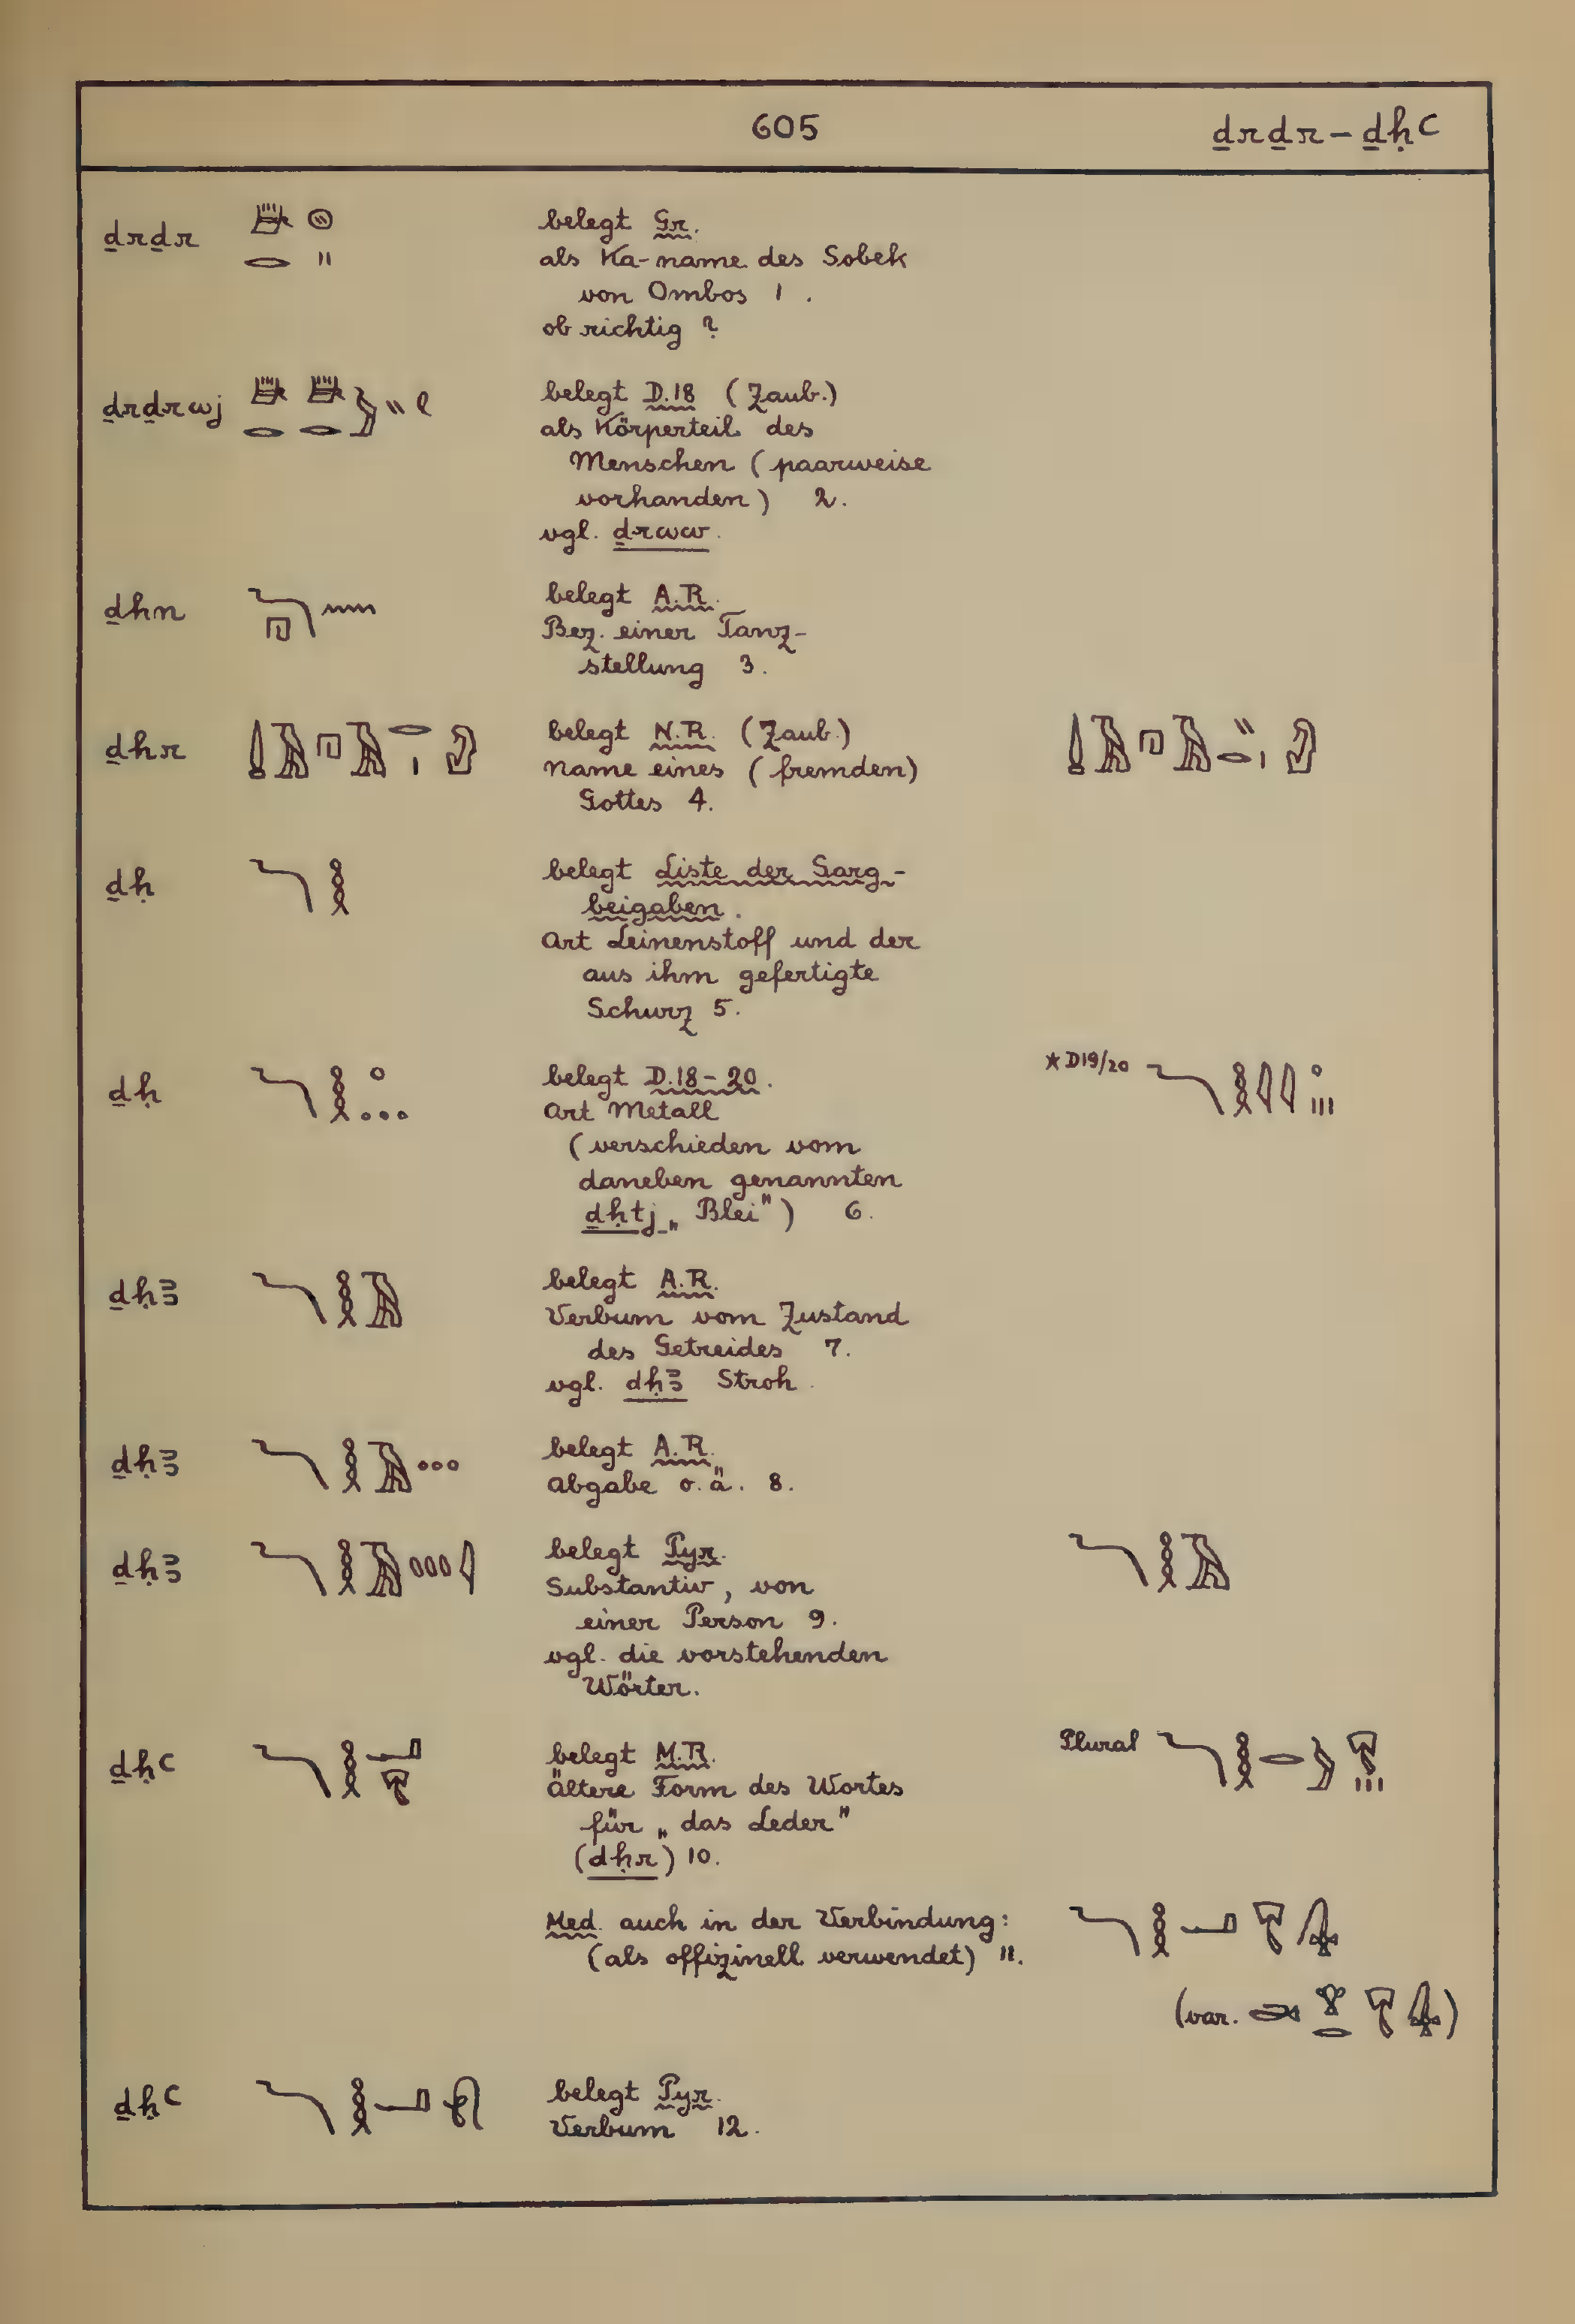 605 ḏrḏr – ḏḥꜥ
ḏrḏr belegt Gr.
als Ka-name des Sobek
von Ombos 1 .
ob richtig ?
ḏrḏrwj belegt D.18 (Zaub.)
als Körperteil des
Menschen (paarweise
vorhanden) 2.
vgl. ḏrww.
ḏhn belegt A.R.
Bez. einer Tanz-
stellung 3.
ḏhr belegt N.R. (Zaub.)
Name eines (fremden)
Gottes 4.
ḏḥ belegt Liste der Sarg-
beigaben.
Art Leinenstoff und der
aus ihm gefertigte
Schurz 5.
ḏḥ belegt D.18–20. * D19/20
Art Metall
(verschieden vom
daneben genannten
ḏḥtj „Blei") 6.
ḏḥꜣ belegt A.R.
Verbum vom Zustand
des Getreides 7.
vgl. dḥꜣ Stroh.
ḏḥꜣ belegt A.R.
Abgabe o.ä. 8.
ḏḥꜣ belegt Pyr.
Substantiv, von
einer Person 9.
vgl. die vorstehenden
Wörter.
ḏḥꜥ belegt M.R. Plural
ältere Form des Wortes
für „das Leder"
(dḥr) 10.
Med. auch in der Verbindung:
(als offizinell verwendet) 11.
(var. )
ḏḥꜥ belegt Pyr.
Verbum 12.